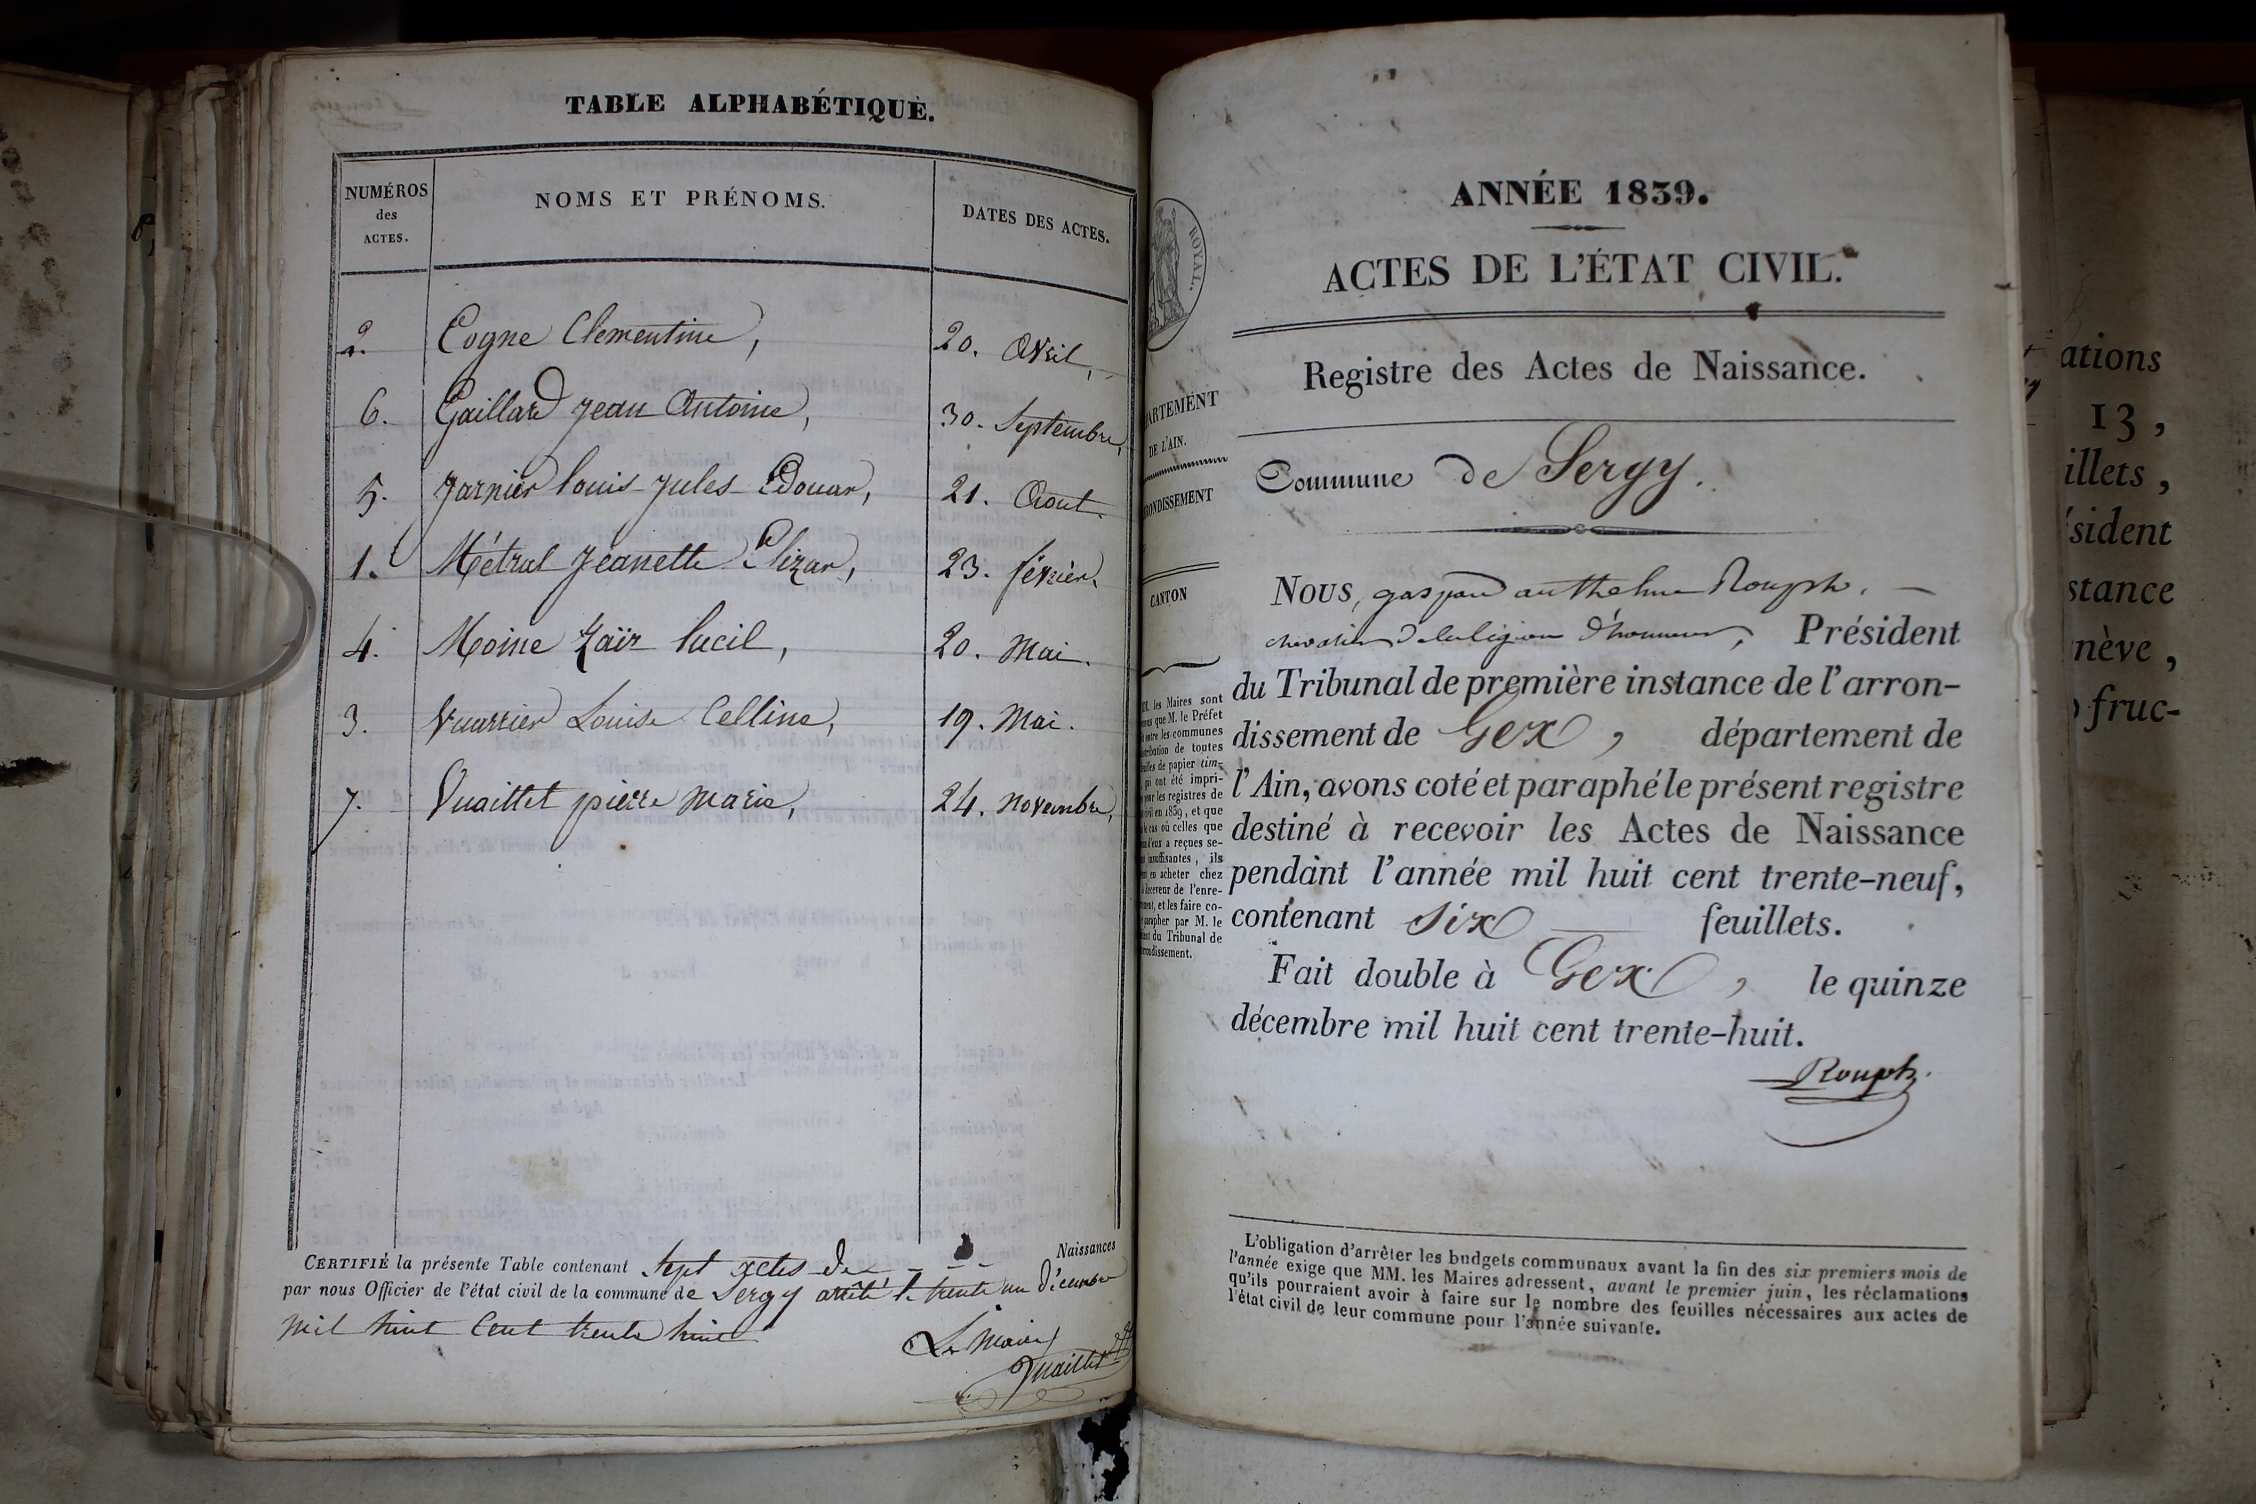 TABLE ALPHABÉTIQUE.
NUMÉROS des ACTES.
NOMS ET PRÉNOMS.
DATES DES ACTES.
2. Cogne Clementine, 20. Avril,
6. Gaillard Jean Antoine, 30. Septembre,
5. Jarnier Louis Jules Edouar, 21. Aout.
1. Métral Jeanette Elizar, 23. février.
4. Moine Zaïr Lucil, 20. Mai.
3. Vuarrier Louise Celline, 19. Mai.
7. Vuaillet pierre Marie, 24. Novembre,
CERTIFIÉ la présente Table contenant Sept actes de Naissances
par nous Officier de l'état civil de la commune de Sergy arrêté le trente un Décembre
Mil huit Cent trente huit
Le Maire
Vuaillet
ANNÉE 1839.
ACTES DE L'ÉTAT CIVIL.
Registre des Actes de Naissance.
Commune de Sergy.
NOUS, gaspard anthelme Rouph.
chevalier de la légion d'honneur, Président
du Tribunal de première instance de l'arron-
dissement de Gex, département de
l'Ain, avons coté et paraphé le présent registre
destiné à recevoir les Actes de Naissance
pendant l'année mil huit cent trente-neuf,
contenant six feuillets.
Fait double à Gex, le quinze
décembre mil huit cent trente-huit.
Rouph.
L'obligation d'arrêter les budgets communaux avant la fin des six premiers mois de
l'année exige que MM. les Maires adressent, avant le premier juin, les réclamations
qu'ils pourraient avoir à faire sur le nombre des feuilles nécessaires aux actes de
l'état civil de leur commune pour l'année suivante.
ROYAL.
DE L'AIN.
CANTON
les Maires sont
que M. le Préfet
les communes
de toutes
de papier tim-
ont été impri-
les registres de
en 1839, et que
cas où celles que
a reçues se-
insuffisantes, ils
en acheter chez
de l'enre-
et les faire co-
par M. le
du Tribunal de
13,